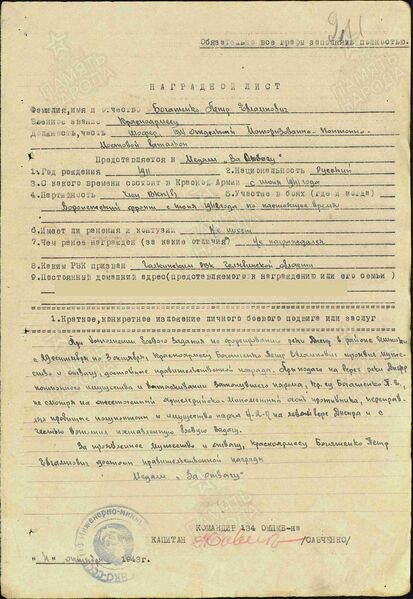 Обязательно все графы заполнять полностью.
НАГРАДНОЙ ЛИСТ
Фамилия, имя и отчество Богатенко Петр Евгамиович
Военное звание Красноармеец
Должность, часть Шофер 134 Отдельный Моторизованно-Понтонно-
Мостовой батальон
Представляется к Медали "За Отвагу"
1. Год рождения 1911 2. Национальность Русский
3. С какого времени состоит в Красной Армии с июня 1941 года
4. Партийность Член ВКП(б) 5. Участие в боях (где и когда)
Воронежский фронт с июня 1942 года по настоящее время
6. Имеет ли ранения и контузии Не имеет
7. Чем ранее награжден (за какие отличия) Не награждался
8. Каким РВК призван Галкинским РВК Челябинской области
9. Постоянный домашний адрес (представляемого к награждению или его семьи)
1. Краткое, конкретное изложение личного боевого подвига или заслуг
При выполнении боевого задания по форсированию реки Днепр в районе
с сентября по 3 октября, Красноармеец Богатенко Петр проявил муже-
ство и отвагу, достойные правительственной награды. При подаче на берег реки Днепр
понтонного имущества и вытаскивании затонувшего парома, кр-ец Богатенко П.Е.,
не смотря на ожесточенный Артиллерийско-Минометный огонь противника,
имущество парка Н-2-П на левом берегу Днепра и с
честью выполнил боевую задачу.
За проявленное мужество и отвагу, красноармеец Богатенко Петр
достоин правительственной награды
Медали "За отвагу"
КОМАНДИР 134 ОМПМБ-на
КАПИТАН /САВЧЕНКО/
октября 1943г.